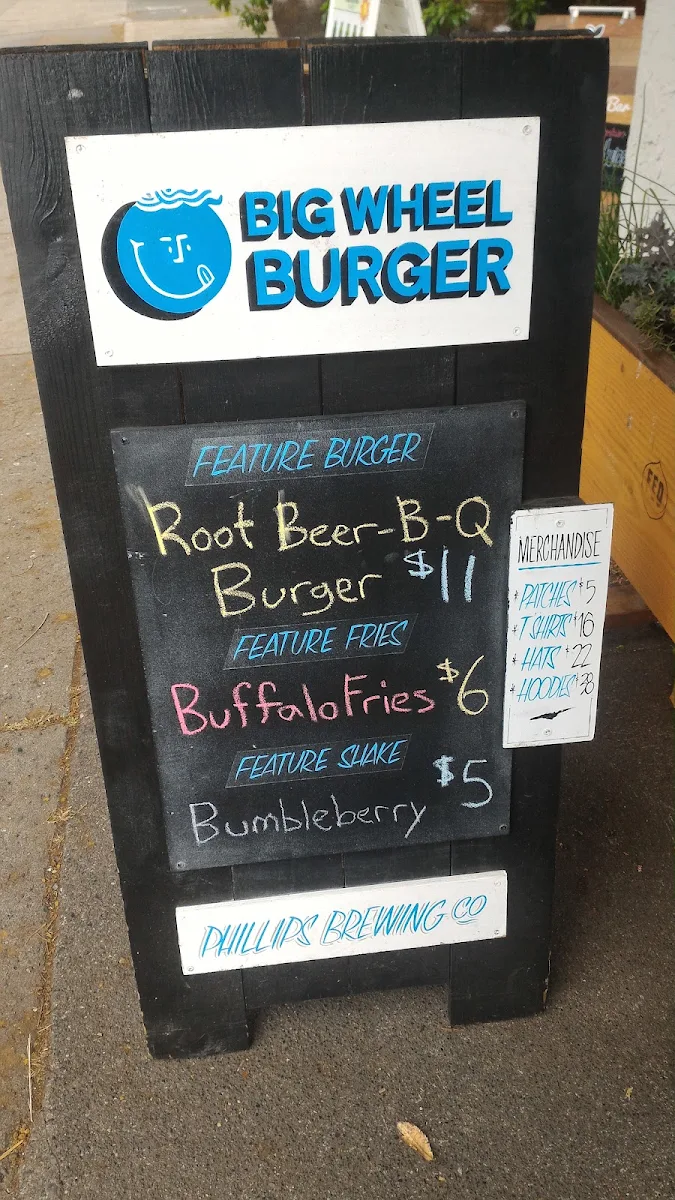 BIG WHEEL
BURGER
FEATURE BURGER
Root Beer-B-Q
Burger $11
FEATURE FRIES
Buffalo Fries $6
FEATURE SHAKE
Bumbleberry $5
MERCHANDISE
* PATCHES $5
* T SHIRTS $16
* HATS $22
* HOODIES $38
PHILLIPS BREWING CO